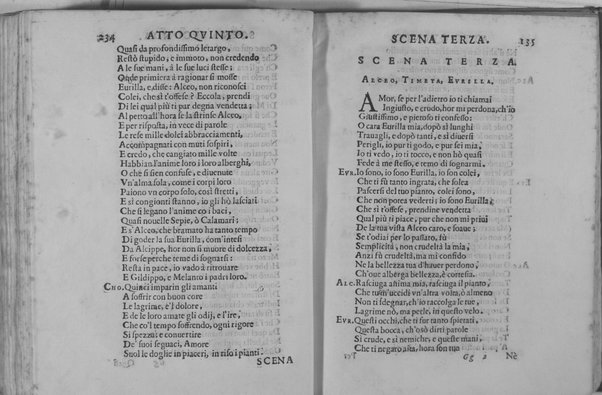 234 ATTO QVINTO.
Quasi da profondissimo letargo,
Restò stupido, e immoto, non credendo
A le sue mani, à le sue luci stesse;
Onde primiera à ragionar si mosse
Eurilla, e, disse: Alceo, non riconosci
Colei, che sì t'offese è Eccola, prendi
Di lei qual più ti par degna vendetta;
Al petto all'hora se la strinse Alceo,
E per risposta, in vece di parole
Le rese mille dolci abbracciamenti,
Accompagnati con muti sospiri,
E credo, che cangiato mille volte
Habbian l'anime loro i loro alberghi,
O che si sien confuse, e diuenute
Vn'alma sola, come i corpi loro
Paiono vn corpo solo, così stretti,
E sì congionti stanno, io gli hò lasciati
Che si legano l'anime co i baci,
Quasi nouelle Sepie, ò Calamari;
E s'Alceo, che bramato ha tanto tempo
Di goder la sua Eurilla, com'intesi
Da Alcippe, hor non si muore di dolcezza,
E forse perche teme di sognarsi:
Resta in pace, io vado à ritrouare
E Gildippo, e Melanto i padri loro.
CHO. Quinci imparin gli amanti
A soffrir con buon core
Le lagrime, e'l dolore,
E de le loro amate gli odij, e l'ire,
Che co'l tempo soffrendo, ogni rigore
Si spezza: e conuertire
De' suoi seguaci, Amore
Suol le doglie in piaceri, in riso i pianti.
SCENA
SCENA TERZA. 135
SCENA TERZA.
ALCEO, TIMETA, EVRILLA.
AMor, se per l'adietro io ti chiamai
Ingiusto, e crudo, hor mi perdona, ch'io
Giustissimo, e pietoso ti confesso:
O cara Eurilla mia, dopò sì lunghi
Trauagli, e dopò tanti, e sì diuersi
Perigli, io pur ti godo, e pur sei mia;
Io ti vedo, io ti tocco, e non hò quasi
Fede à me stesso, e temo di sognarmi.
EVR. Io sono, io sono Eurilla; io son colei,
Che ti fù tanto ingrata, che solea
Pascersi del tuo pianto, colei sono,
Che non potea vederti; io sono Eurilla;
Che sì t'offese, prendine vendetta
Qual più ti piace, pur che non mi priui
De la tua vista Alceo caro, e soaue;
Se t'odiai per lo passato, fù
Semplicità, non crudeltà la mia,
Anzi fù crudeltà, ma mi confido
Ne la bellezza tua d'hauer perdono,
Ch'oue alberga bellezza, è cortesia.
ALC. Rasciuga anima mia, rasciuga il pianto,
Che tu m'uccidi vn'altra volta, ò almeno
Non ti sdegnar, ch'io raccolga le tue,
Lagrime nò, ma perle, in questo velo.
EVR. Questi occhi, che ti fur tanto spietati,
Questa bocca, ch'osò dirti parole
Sì crude, e sì nemiche; e queste mani,
Che ti negaro aita, hora son tuo
Gg 2 Nè